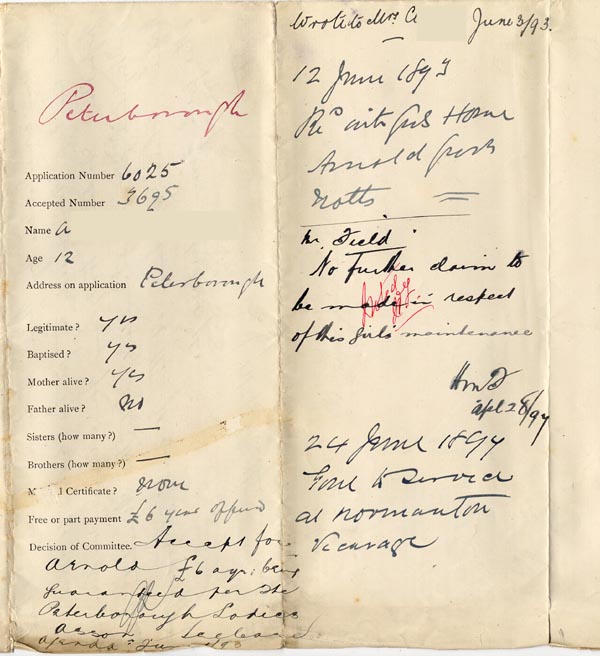 Peterborough
Application Number 6025
Accepted Number 3695
Name A
Age 12
Address on application Peterborough
Legitimate? Yes
Baptised? Yes
Mother alive? Yes
Father alive? No
Sisters (how many?) —
Brothers (how many?) —
M l Certificate? None
Free or part payment £6 year offered
Decision of Committee. Accept for
Arnold £6 a yr: being
guaranteed per the
Peterborough Ladies
Assocn
Wrote to Mrs A June 3/93.
12 June 1893
Recd into Girls Home
Arnold
Notts
Mr. Field
No further claim to
be made in respect
of this girl's maintenance
Noted
Apl 28/97
24 June 1897
Gone to Service
at Normanton
Vicarage